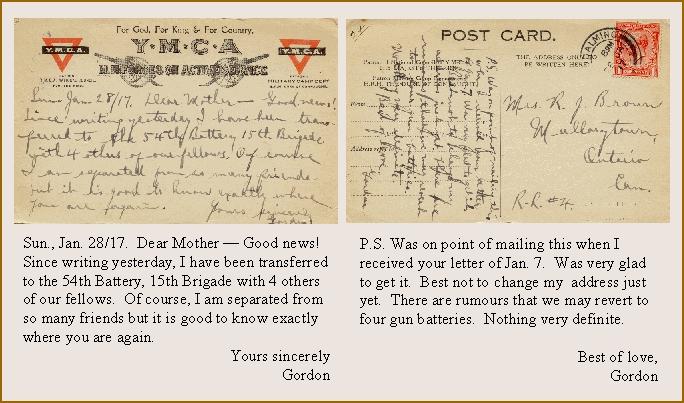 For God, For King & For Country.
Y·M·C·A
Y.M.C.A.
Y.M.C.A.
H.M. FORCES ON ACTIVE SERVICE
MILITARY CAMP DEPT
Sun. Jan. 28/17. Dear Mother — Good news!
Since writing yesterday I have been trans-
ferred to the 54th Battery, 15th Brigade
with 4 others of our fellows. Of course
I am separated from so many friends
but it is good to know exactly where
you are again.
Yours sincerely
Gordon
POST CARD.
THE ADDRESS ONLY TO
BE WRITTEN HERE.
Mrs. R. J. Brown
Mallorytown,
Ontario
Can.
R.R. #4.
P.S. Was on point of mailing this
when I received your letter
of Jan. 7. Was very glad
to get it. Best
not to change my
address just yet. There are
rumours that we may revert
to four gun batteries.
Nothing very definite.
Best of love
Gordon
Sun., Jan. 28/17. Dear Mother — Good news!
Since writing yesterday, I have been transferred
to the 54th Battery, 15th Brigade with 4 others
of our fellows. Of course, I am separated from
so many friends but it is good to know exactly
where you are again.
Yours sincerely
Gordon
P.S. Was on point of mailing this when I
received your letter of Jan. 7. Was very glad
to get it. Best not to change my address just
yet. There are rumours that we may revert to
four gun batteries. Nothing very definite.
Best of love,
Gordon